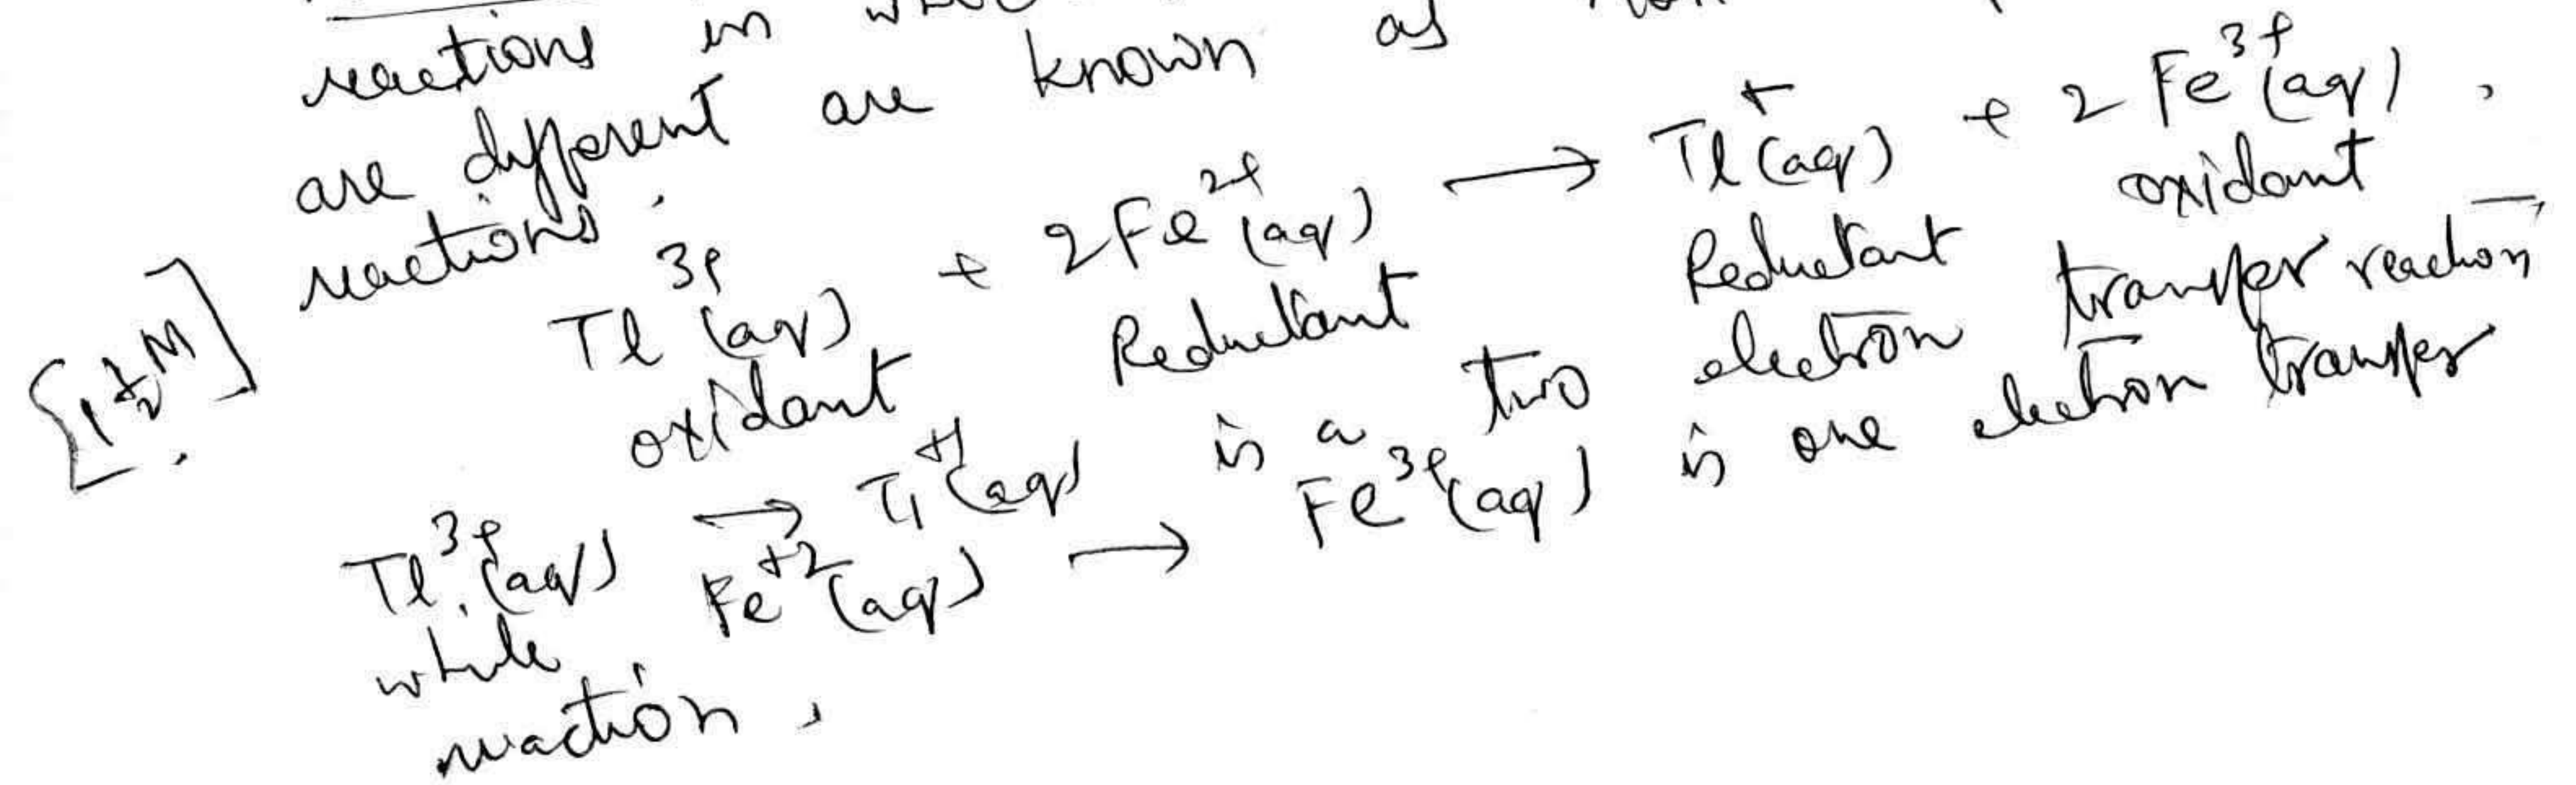 reactions in
are different are known as
reactions.
Tl³⁺(aq) + 2Fe²⁺(aq) ⟶ Tl⁺(aq) + 2Fe³⁺(aq).
oxidant Reductant Reductant oxidant
[1½M]
Tl³⁺(aq) ⟶ Tl⁺¹(aq) is a two electron transfer reaction,
while Fe⁺²(aq) ⟶ Fe³⁺(aq) is one electron transfer
reaction.